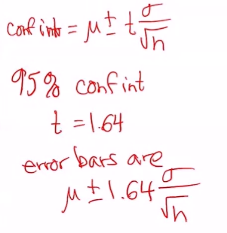 conf int = μ ± t σ/√n
95% conf int
t = 1.64
error bars are
μ ± 1.64 σ/√n